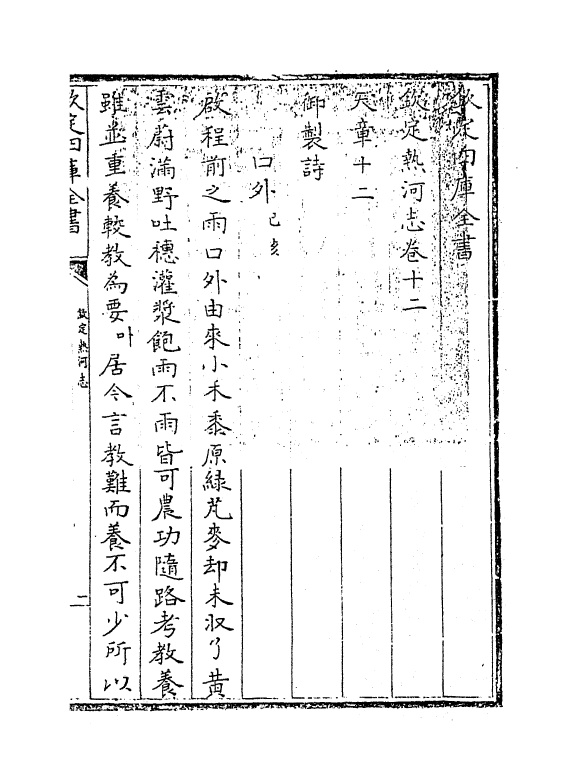 欽定四庫全書
欽定熱河志卷十二
天章十二
御製詩
口外己亥
啟程前之雨口外由來小禾黍原綠芃麥却未収了黄
雲蔚滿野吐穗灌漿飽雨不雨皆可農功隨路考教養
雖並重養較教為要叶居今言教難而養不可少所以
欽定四庫全書
欽定熱河志
二